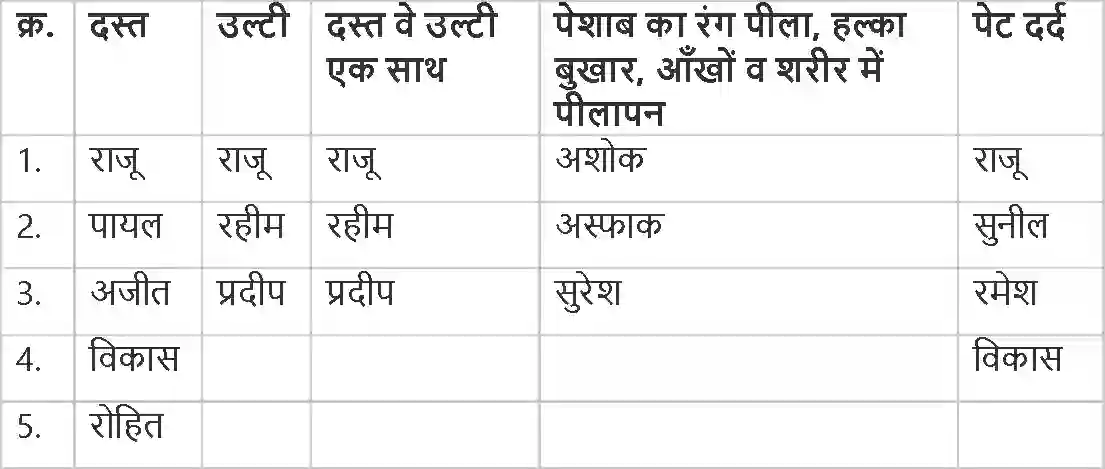 क्र. दस्त उल्टी दस्त वे उल्टी एक साथ पेशाब का रंग पीला, हल्का बुखार, आँखों व शरीर में पीलापन पेट दर्द
1. राजू राजू राजू अशोक राजू
2. पायल रहीम रहीम अस्फाक सुनील
3. अजीत प्रदीप प्रदीप सुरेश रमेश
4. विकास विकास
5. रोहित